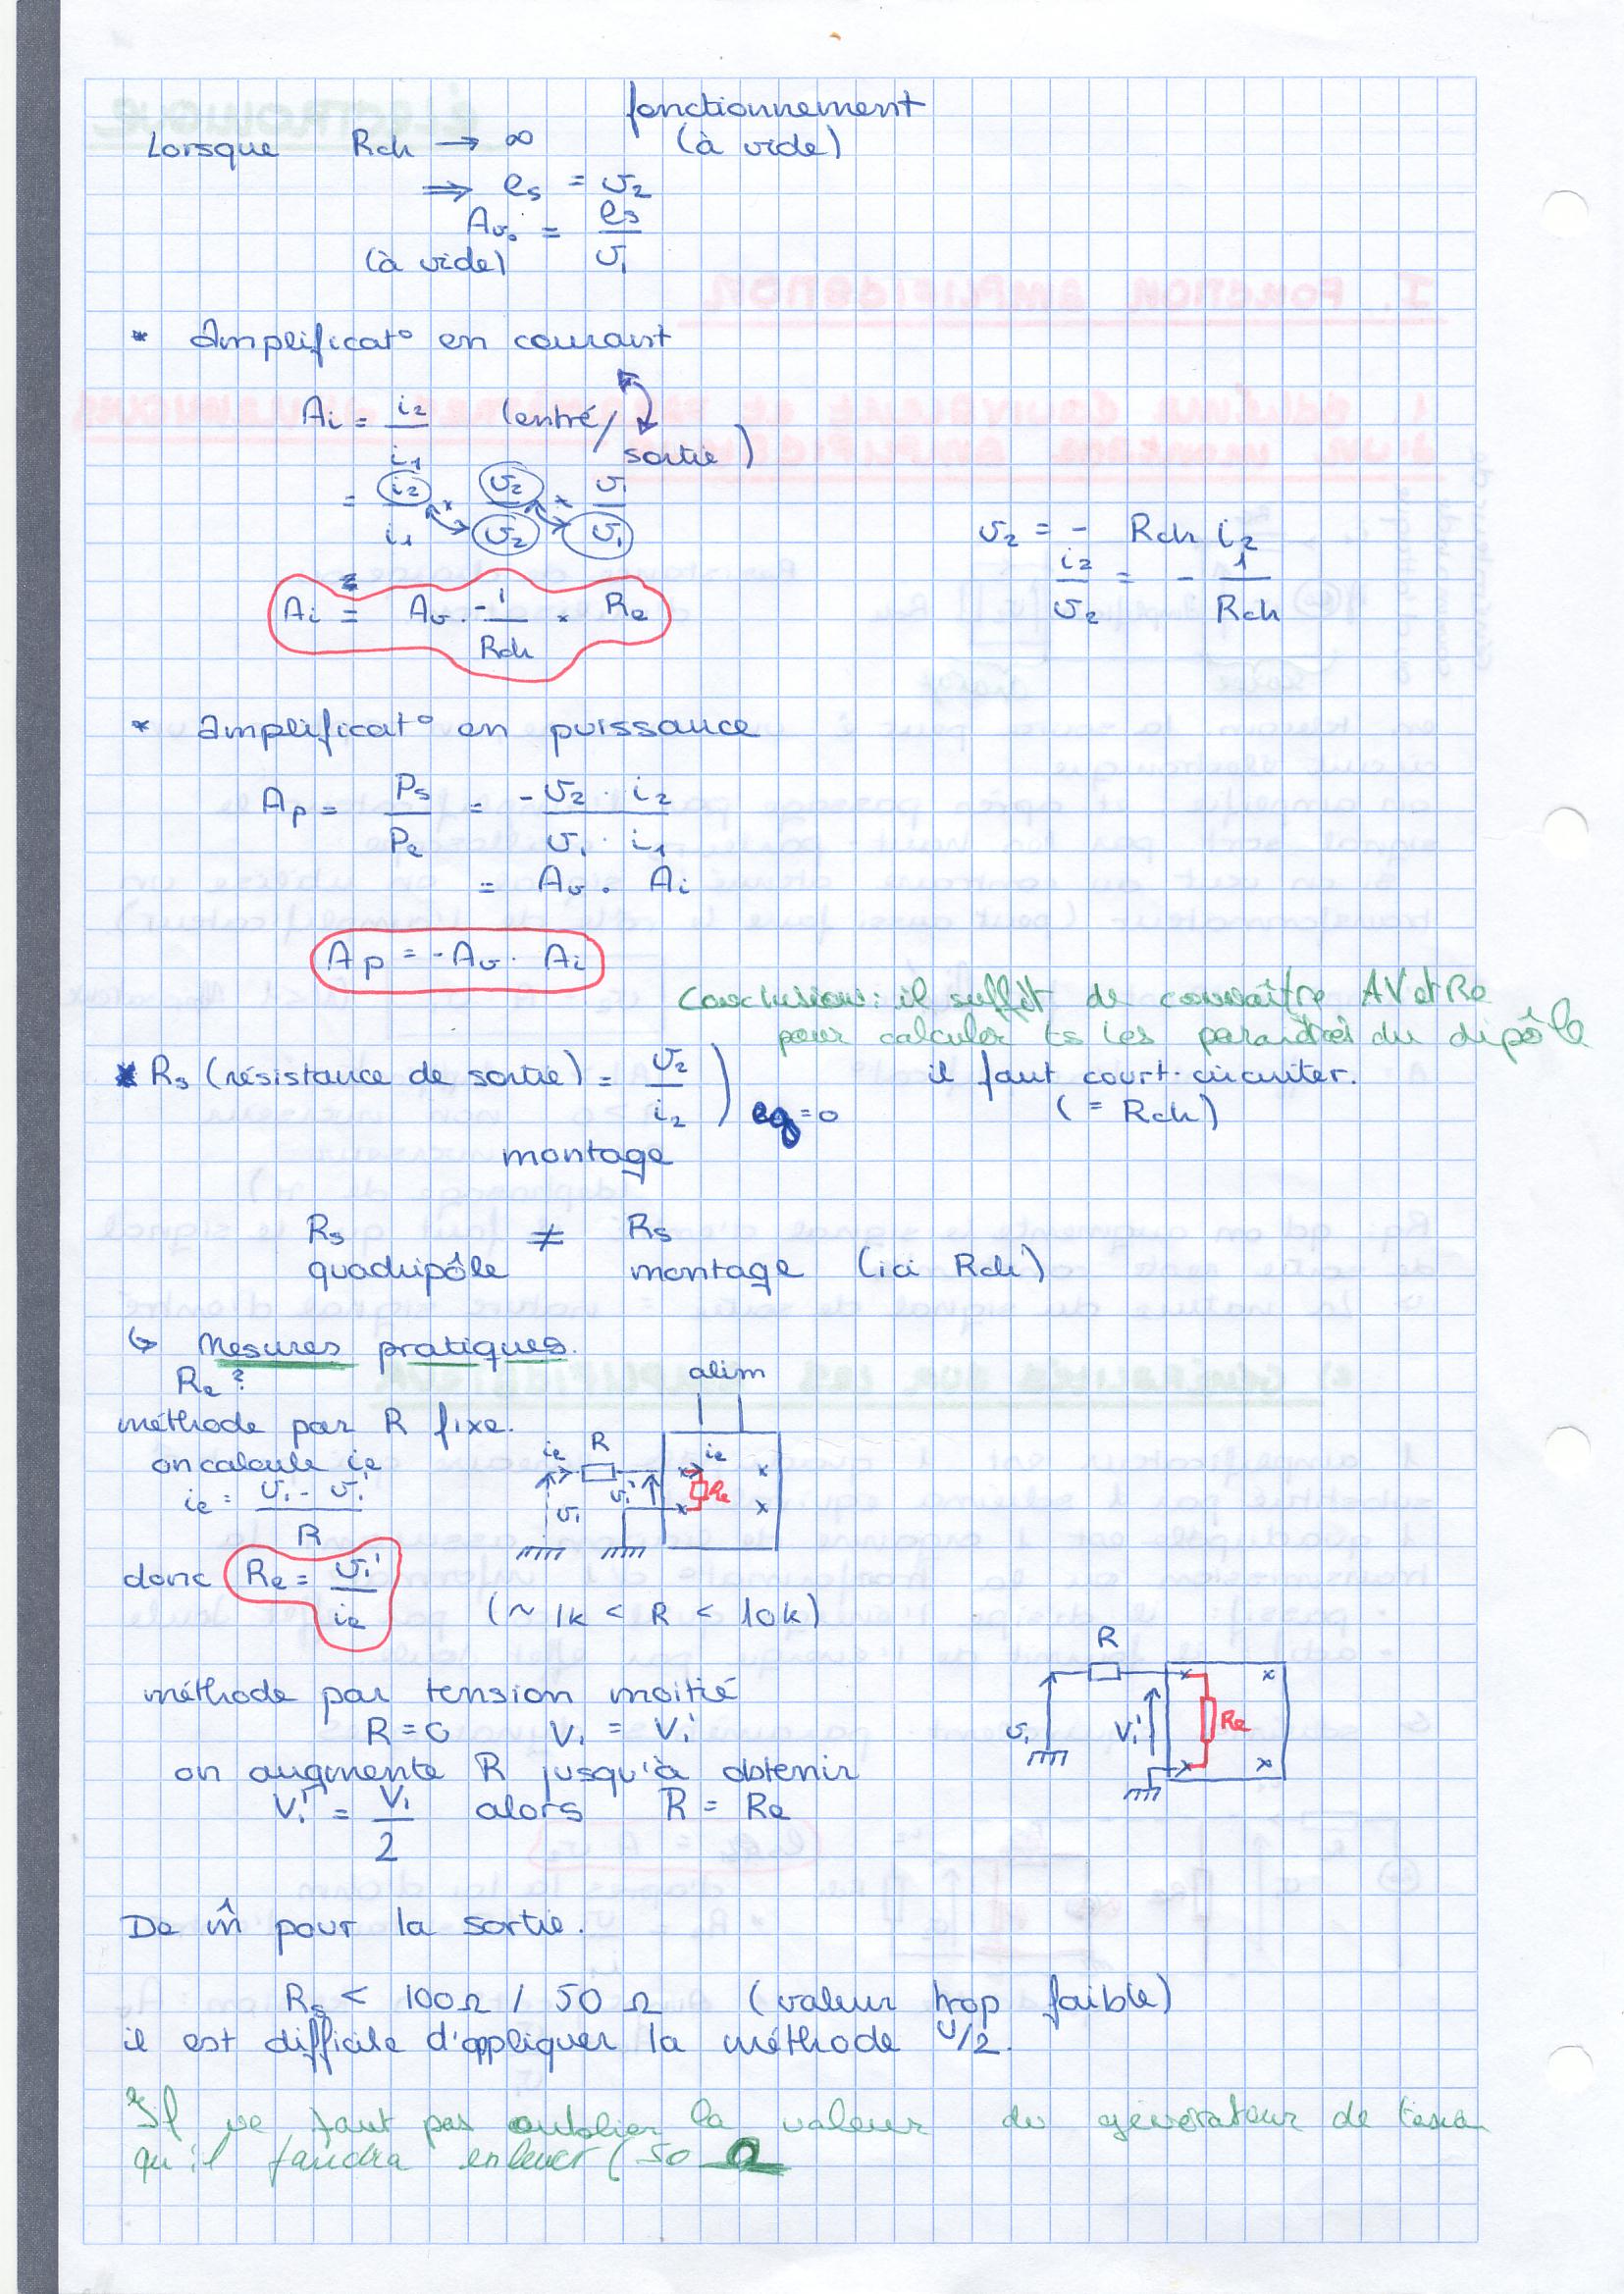 fonctionnement
Lorsque Rch → ∞ (à vide)
⇒ es = v2
Avo = es / v1
(à vide)
* Amplificat° en courant
Ai = i2 / i1 (entré / sortie)
= i2 / i1 × v2 / v2 × v1 / v1
v2 = - Rch i2
i2 / v2 = - 1 / Rch
Ai = Av . -1 / Rch × Re
* amplificat° en puissance
Ap = Ps / Pe = - v2 . i2 / v1 . i1
= Av . Ai
Ap = - Av . Ai
Conclusion : il suffit de connaître AV et Re
pour calculer ts les du dipôle
* Rs (résistance de sortie) = v2 / i2 ) eg = 0 il faut court-circuiter.
(= Rch)
montage
Rs ≠ Rs
quadripôle montage (ici Rch)
↳ Mesures pratiques.
Re ?
alim
méthode par R fixe.
on calcule ie
ie = v1 - v1' / R
ie R ie
v1 v1' Re
donc Re = v1' / ie (~ 1k < R < 10k)
méthode par tension moitié
R = 0 V1 = V1'
on augmente R jusqu'à obtenir
V1' = V1 / 2 alors R = Re
R
v1 V1' Re
De m̂ pour la sortie.
Rs < 100Ω / 50 Ω (valeur trop faible)
il est difficile d'appliquer la méthode U/2.
Il ne faut pas oublier la valeur du générateur de
qu'il faudra enlever (50 Ω